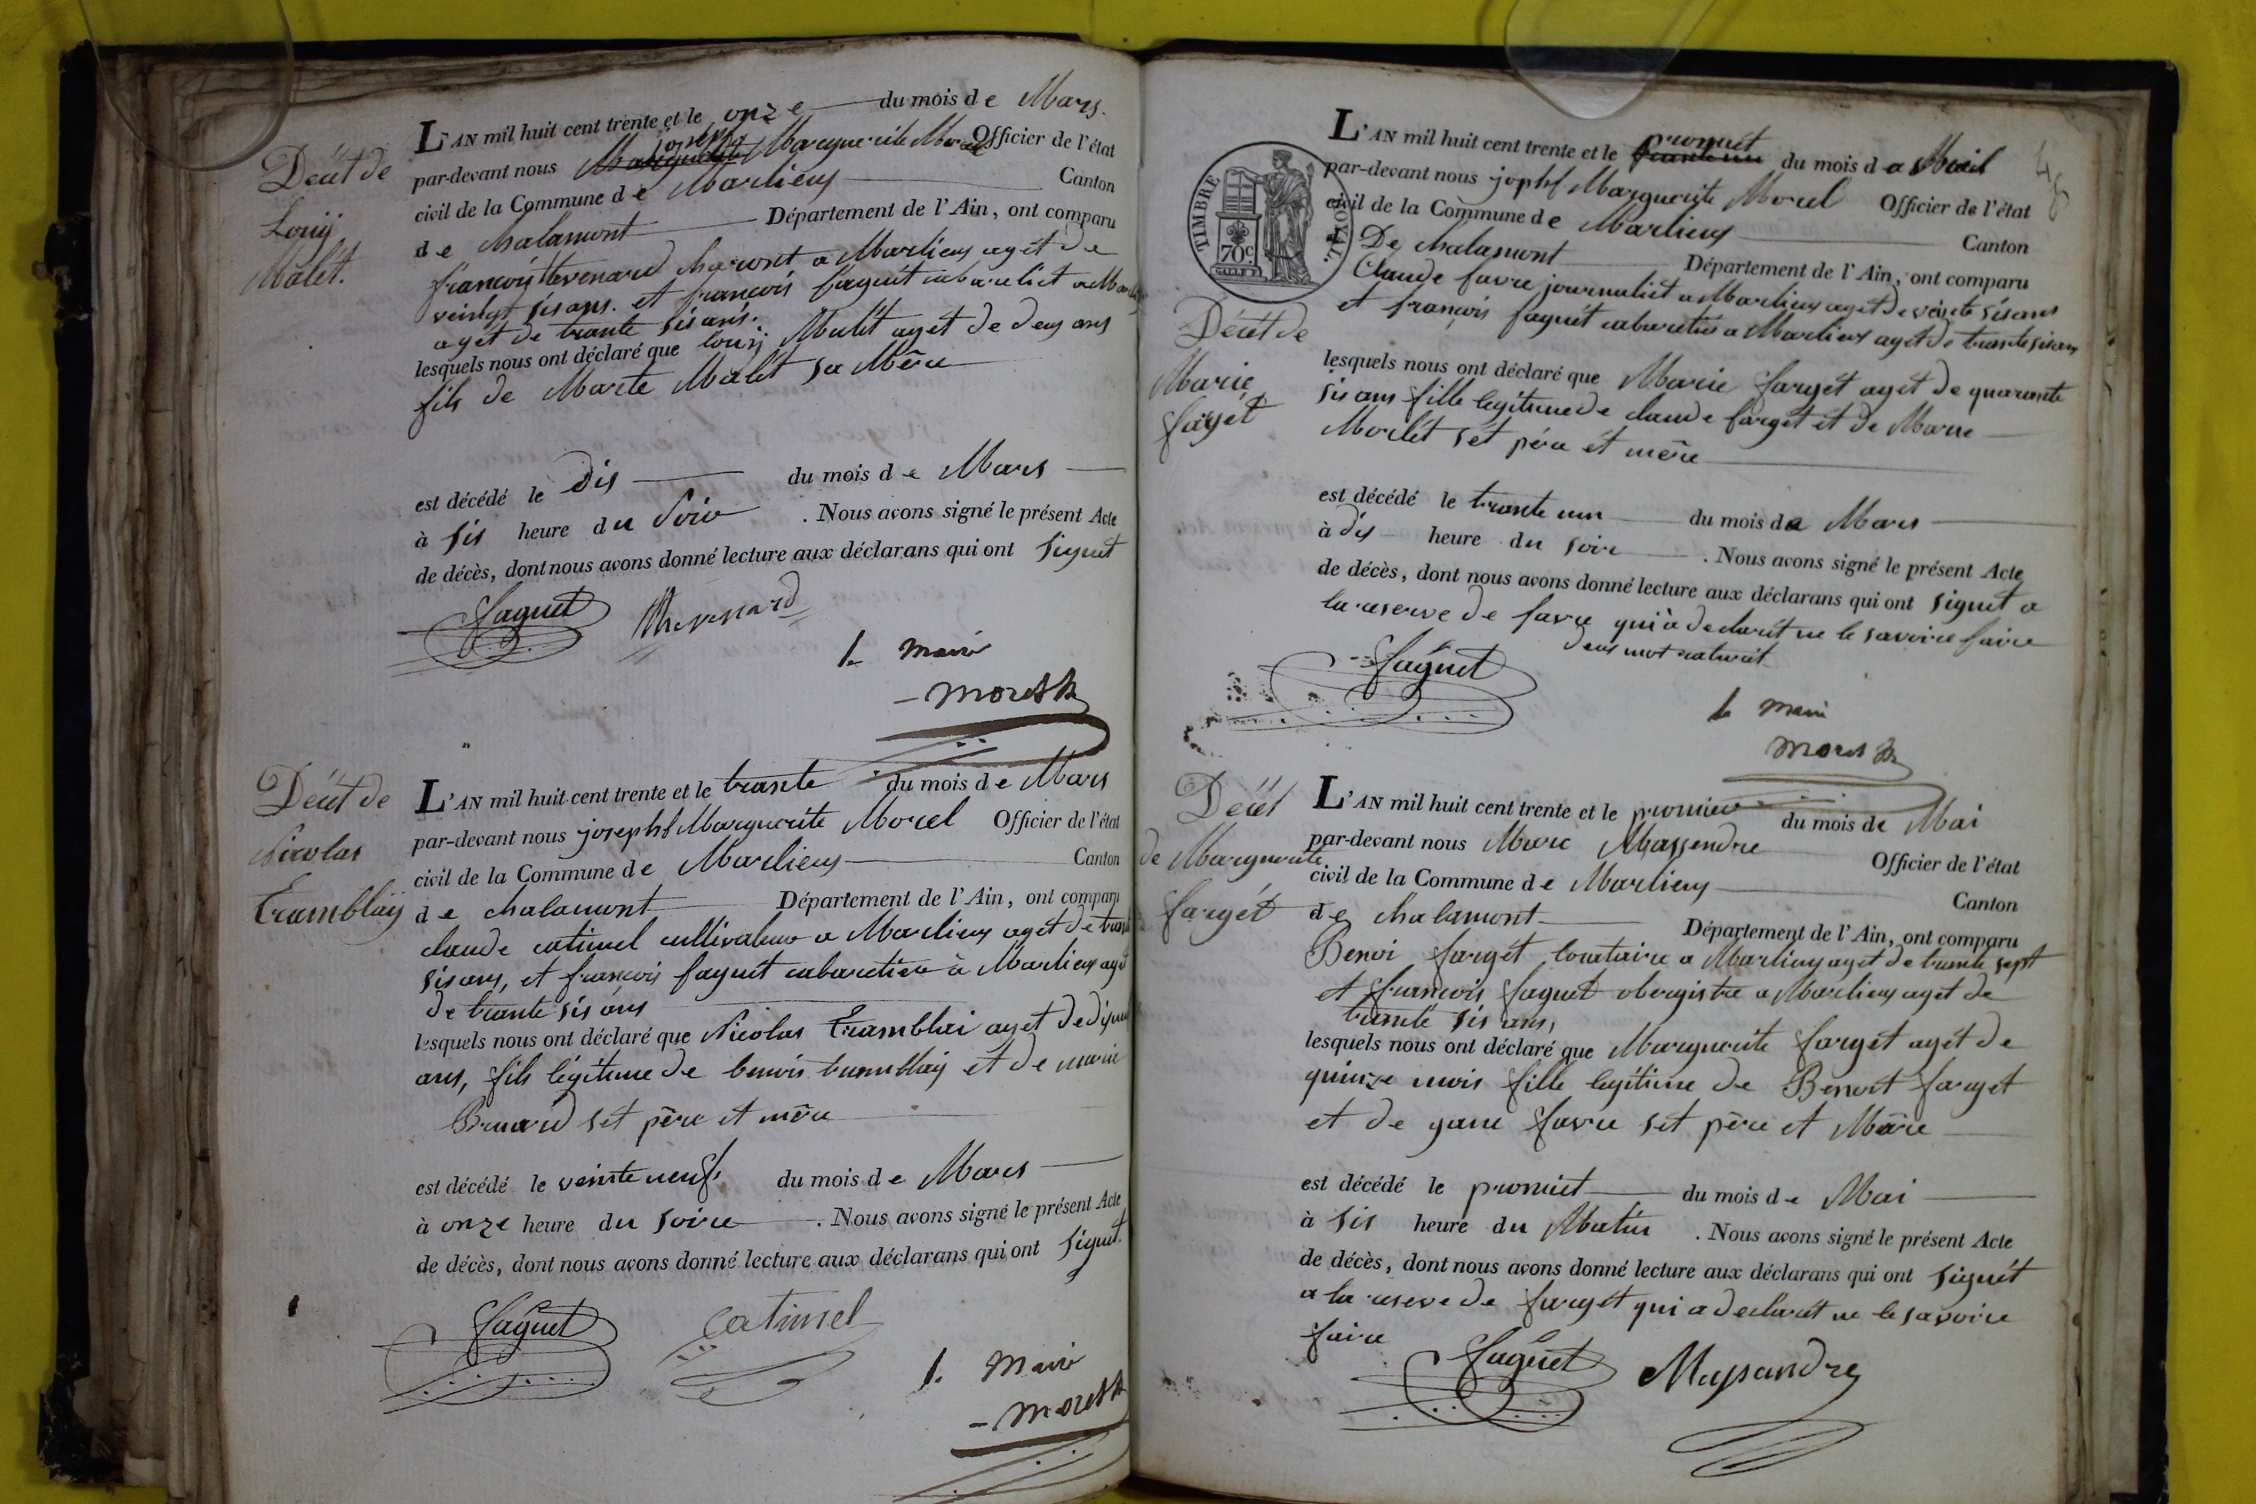 Décét de
Louij
Malet.
L'AN mil huit cent trente et le onze du mois de Mars.
par-devant nous joseph Margueritte Morel Officier de l'état
civil de la Commune de Marlieux Canton
de chalamont Département de l'Ain, ont comparu
françois thevenard charont a Marlieux agét de
veintgt sis ans. et françois faguét cabareliét a
agét de trante sis ans.
lesquels nous ont déclaré que louij Malét agét de deus ans
fils de Marte Malét sa Mère
est décédé le dis du mois de Mars
à sis heure du Soir . Nous avons signé le présent Acte
de décès, dont nous avons donné lecture aux déclarans qui ont signét
faguet Thevenard
le maire
morel
Décét de
Nicolas
Tramblaij
L'AN mil huit cent trente et le trante du mois de Mars
par-devant nous josephf Marguerite Morel Officier de l'état
civil de la Commune de Marlieux Canton
de chalamont Département de l'Ain, ont comparu
claude catimel cullivateur a Marlieux agét de
sis ans, et françois faguét cabaretier à Marlieux agét
de trante sis ans
lesquels nous ont déclaré que Nicolas Tramblai agét de
ans, fils légitime de benois tramblaij et de marie
set père et mère
est décédé le veinte neuf du mois de Mars
à onze heure du soire . Nous avons signé le présent Acte
de décès, dont nous avons donné lecture aux déclarans qui ont signét.
faguet catimel
le maire
morel
48
TIMBRE ROYAL.
70c.
Décét de
Marie
farget
L'AN mil huit cent trente et le promiét du mois da
par-devant nous jophf Marguerite Morel Officier de l'état
civil de la Commune de Marlieux Canton
De chalamont Département de l'Ain, ont comparu
Claude favre journaliét a Marlieux agét de veinte sis ans
et françois faguét cabaretier a Marlieux agét de trante sis ans
lesquels nous ont déclaré que Marie farget agét de quarante
sis ans fille legitime de claude farget et de Marie
Morlét sét pére ét mère
est décédé le trante un du mois da Mars
à dis heure du soire . Nous avons signé le présent Acte
de décès, dont nous avons donné lecture aux déclarans qui ont signét a
la reserve de favre qui à declarét ne le savoire faire
deus mot
faguet
le maire
morel
Décét
de Marguerite
fargét
L'AN mil huit cent trente et le promier du mois de Mai
par-devant nous Marc Massendre Officier de l'état
civil de la Commune de Marlieux Canton
de chalamont Département de l'Ain, ont comparu
Benoi farget locataire a Marlieux agét de trante sept
et françois faguet obergistre a Marlieux agét de
trante sis ans,
lesquels nous ont déclaré que Marguerite farget agét de
quinze mois fille legitime de Benoit farget
et de gane favre sét père et Mère
est décédé le promiét du mois de Mai
à sis heure du Matin . Nous avons signé le présent Acte
de décès, dont nous avons donné lecture aux déclarans qui ont signét
a la reseve de farget qui a declarét ne le savoire
faire
faguet Massandre